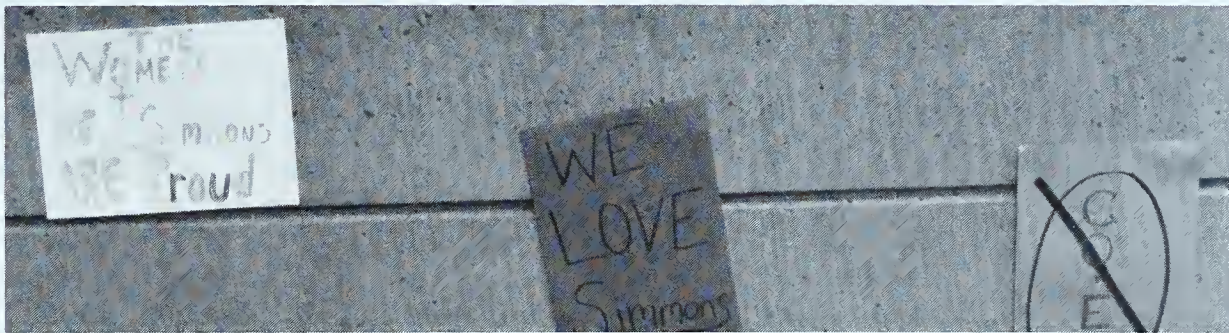 THE
WOMEN
of Simmons
ARE Proud
WE
LOVE
Simmons